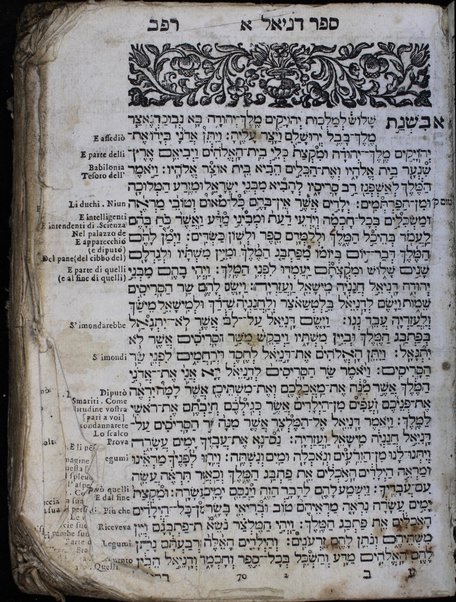 ספר דניאל א רפב
א בשנת שלוש למלכות יהויקים מלך יהודה בא נבוכדנאצר
מלך בבל ירושלם ויצר עליה: ויתן אדני בידו את
יהויקים מלך יהודה ומקצת כלי בית האלהים ויביאם ארץ
שנער בית אלהיו ואת הכלים הביא בית אוצר אלהיו: ויאמר
המלך לאשפנז רב סריסיו להביא מבני ישראל ומזרע המלוכה
ומן הפרתמים: ילדים אשר אין בהם כל מאום וטובי מראה
ומשכלים בכל חכמה וידעי דעת ומביני מדע ואשר כח בהם
לעמד בהיכל המלך וללמדם ספר ולשון כשדים: וימן להם
המלך דבר יום ביומו מפת בג המלך ומיין משתיו ולגדלם
שנים שלוש ומקצתם יעמדו לפני המלך: ויהי בהם מבני
יהודה דניאל חנניה מישאל ועזריה: וישם להם שר הסריסים
שמות וישם לדניאל בלטשאצר ולחנניה שדרך ולמישאל מישך
ולעזריה עבד נגו: וישם דניאל על לבו אשר לא יתגאל
בפתבג המלך וביין משתיו ויבקש משר הסריסים אשר לא
יתגאל: ויתן האלהים את דניאל לחסד ולרחמים לפני שר
הסריסים: ויאמר שר הסריסים לדניאל ירא אני את אדני
המלך אשר מנה את מאכלכם ואת משתיכם אשר למה יראה
את פניכם זעפים מן הילדים אשר כגילכם וחיבתם את ראשי
למלך: ויאמר דניאל אל המלצר אשר מנה שר הסריסים על
דניאל חנניה מישאל ועזריה: נס נא את עבדיך ימים עשרה
ויתנו לנו מן הזרעים ונאכלה ומים ונשתה: ויראו לפניך מראינו
ומראה הילדים האכלים את פתבג המלך וכאשר תראה עשה
עם עבדיך: וישמע להם לדבר הזה וינסם ימים עשרה: ומקצת
ימים עשרה נראה מראיהם טוב ובריאי בשר מן כל הילדים
האכלים את פתבג המלך: ויהי המלצר נשא את פתבגם ויין
משתיהם ונתן להם זרענים: והילדים האלה ארבעתם נתן
להם האלהים מדע והשכל בכל ספר וחכמה ודניאל הבין
ע ב 2 70
E assediò
E parte delli
Babilonia
Tesoro dell'
Li duchi. Niun
E intelligenti
E intendenti di Scienza
Nel palazzo de
E apparecchio
(e diputò)
Del pane (del cibbo del)
E parte di quelli
(e al fine di quelli)
S' imondarebbe
S' imondi
Diputò
Smariti. Come
[pari a voi]
sondannarete
Lo scalco
Prova
egumi
può quelli
E dal fine
Più che
Riceveva
Legumi
Quelli